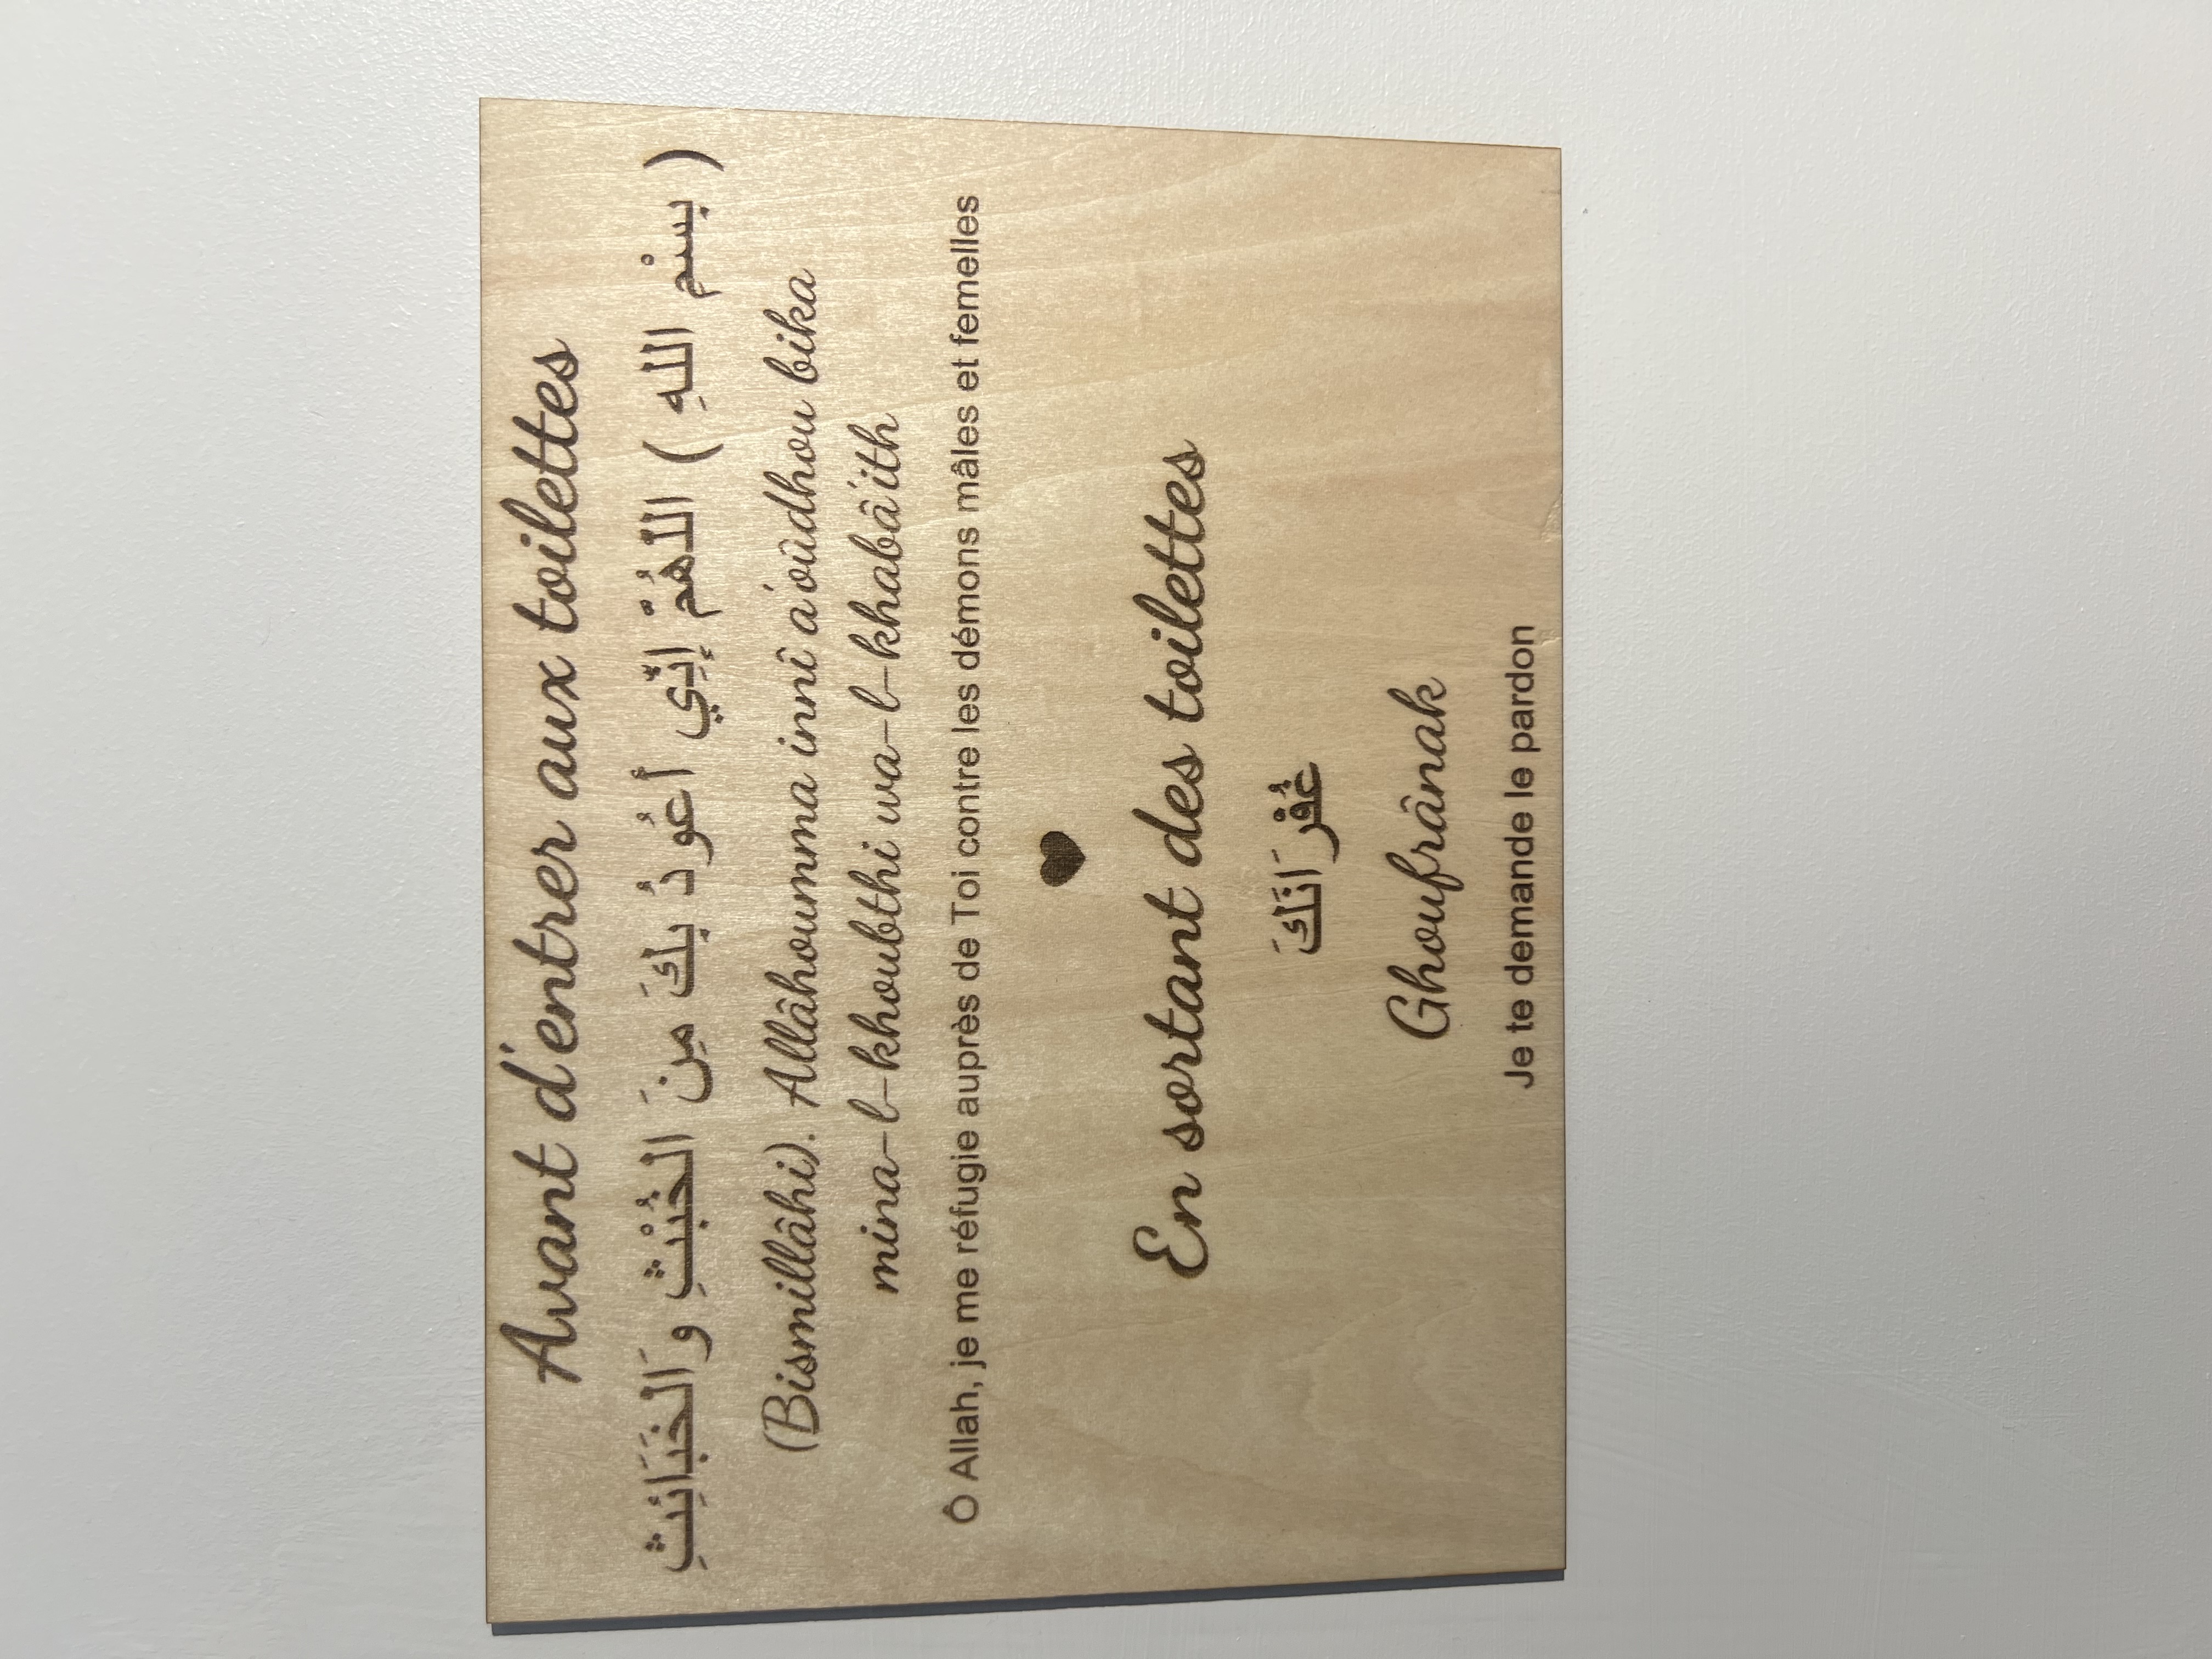 Avant d'entrer aux toilettes
( بِسْمِ اللهِ ) اللّهُمَّ إِنِّي أَعُوذُ بِكَ مِنَ الْخُبْثِ وَالْخَبَائِثِ
(Bismillâhi). Allâhoumma innî a'oûdhou bika
mina-l-khoubthi wa-l-khabâ'ith
Ô Allah, je me réfugie auprès de Toi contre les démons mâles et femelles
En sortant des toilettes
غُفْرَانَكَ
Ghoufrânak
Je te demande le pardon